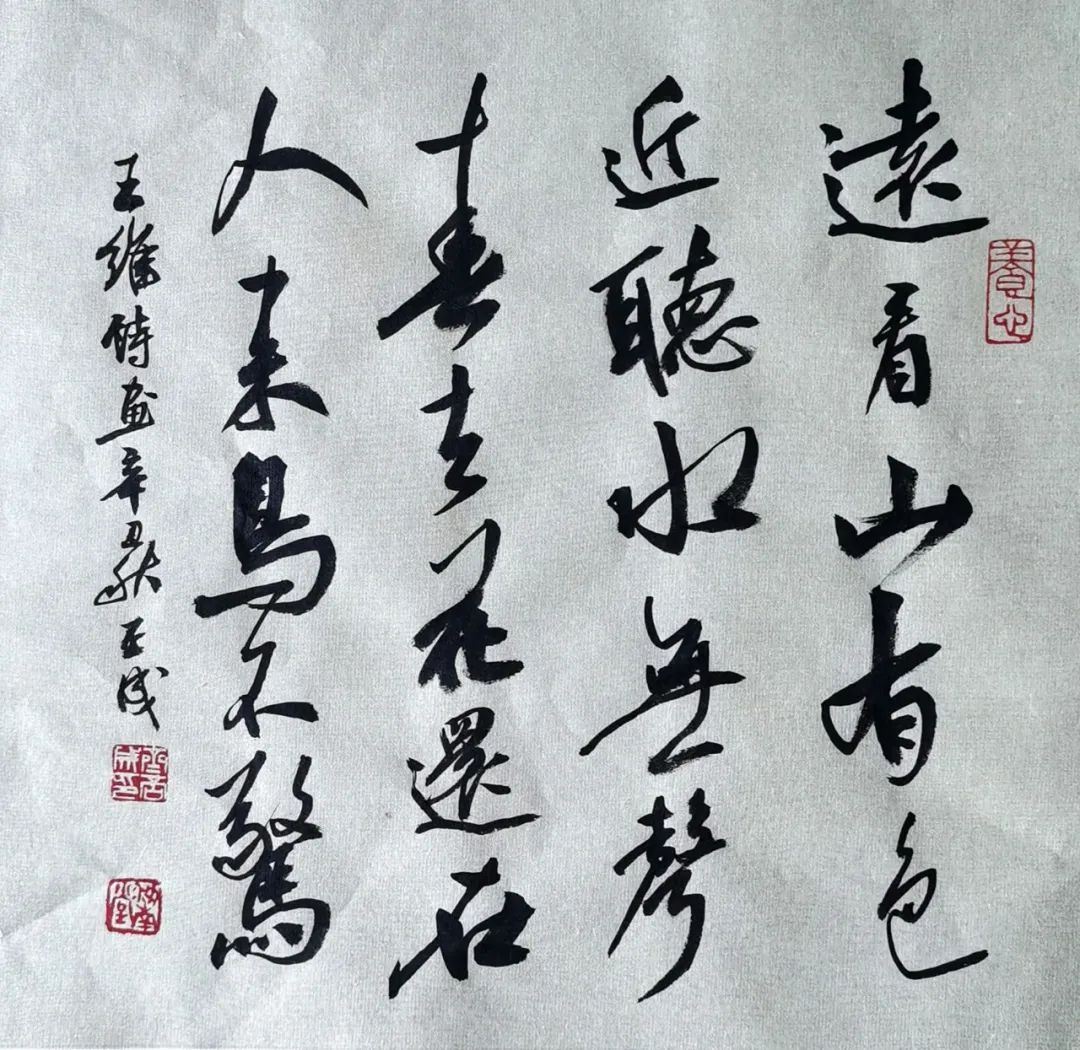 遠看山有色
近聽水無聲
春去花還在
人來鳥不驚
王維詩畫辛丑秋玉成
養心